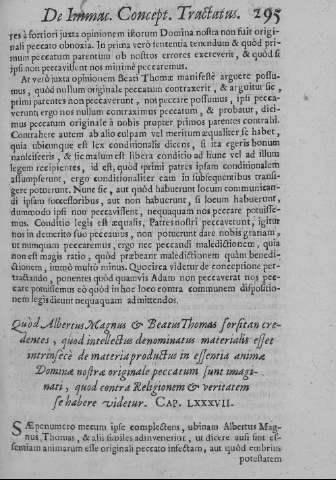 De Immac. Concept. Tractatus. 295
res à fortiori juxta opinionem istorum Domina nostra non fuit origi-
nali peccato obnoxia. In prima verò sententia tenendum & quòd pri-
mum peccatum parentum ob nostros errores exereverit, & quòd si
ipsi non peccavissent nos minimè peccaremus.
At verò juxta opinionem Beati Thomæ manifestè arguere possu-
mus, quòd nullum originale peccatum contraxerit, & arguitur sic,
primi parentes non peccaverunt, nos peccare possumus, ipsi pecca-
verunt, ergo nos nullum contraximus peccatum, & probatur, dici-
mus peccatum originale à nobis propter primos parentes contrahi.
Contrahere autem ab alio culpam vel meritum æqualiter se habet,
quia ubicunque est lex conditionalis dicens, si ita egeris bonum
nancisceris, & sic malum est libera conditio ad hunc vel ad illum
legem recipientes, id est, quòd primi patres ipsam conditionalem
assumpserunt, ergo conditionaliter eam in subsequentibus transi-
gere potuerunt. Nunc sic, aut quòd habuerunt locum communican-
di ipsam successoribus, aut non habuerunt, si locum habuerunt,
dummodo ipsi non peccavissent, nequaquam nos peccare potuisse-
mus. Conditio legis est æqualis, Patres nostri peccaverunt, igitur
nos in demerito suo peccamus, non potuerunt dare nobis gratiam,
ut nunquam peccaremus, ergo nec peccandi maledictionem, quia
non est magis ratio, quòd præbeant maledictionem quàm benedi-
ctionem, immò multò minus. Quocirca videtur de conceptione per-
tractando, potentes quòd quamvis Adam non peccaverat nos pec-
care potuissemus eò quòd in hoc loco contra communem dispositio-
nem legis dicunt nequaquam admittendos.
Quòd Albertus Magnus & Beatus Thomas forsitan cre-
dentes, quod intellectus denominatus materialis esset
intrinsecè de materia productus in essentia animæ
Dominæ nostræ originale peccatum sunt imagi-
nati, quod contra Religionem & veritatem
se habere videtur. CAP. LXXXVII.
SÆpenumero mecum ipse complectens, ubinam Albertus Mag-
nus, Thomas, & alii similes adinvenerint, ut dicere ausi sint es-
sentiam animarum esse originali peccato infectam, aut quòd embrius
potestatem